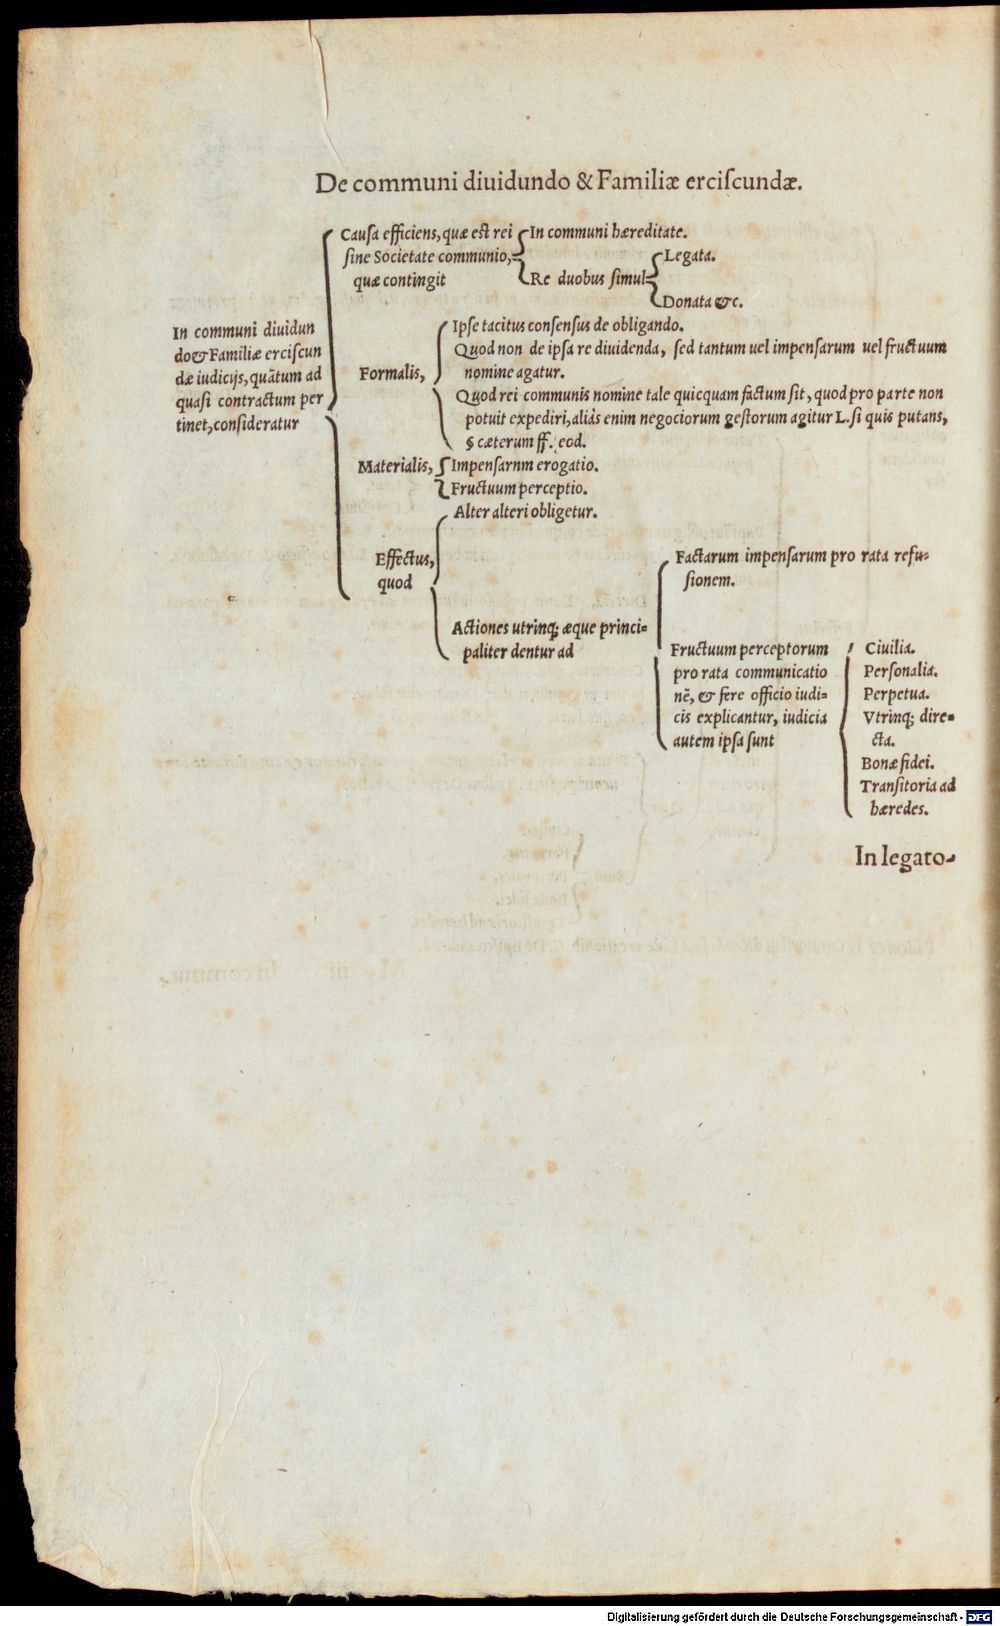 De communi diuidundo & Familiæ erciſcundæ.
In communi diuidun
do & Familiæ erciſcun
dæ iudicijs, quãtum ad
quaſi contractum per
tinet, conſideratur
Cauſa efficiens, quæ est rei
ſine Societate communio,
quæ contingit
In communi hæreditate.
Re duobus ſimul
Legata.
Donata &c.
Formalis,
Ipſe tacitus conſenſus de obligando.
Quod non de ipſa re diuidenda, ſed tantum uel impenſarum uel fructuum
nomine agatur.
Quod rei communis nomine tale quicquam factum ſit, quod pro parte non
potuit expediri, aliàs enim negociorum geſtorum agitur L. ſi quis putans,
§ cæterum ff. eod.
Materialis,
Impenſarnm erogatio.
Fructuum perceptio.
Effectus,
quod
Alter alteri obligetur.
Actiones utrinq; æque princi-
paliter dentur ad
Factarum impenſarum pro rata refu-
ſionem.
Fructuum perceptorum
pro rata communicatio
nẽ, & fere officio iudi-
cis explicantur, iudicia
autem ipſa ſunt
Ciuilia.
Perſonalia.
Perpetua.
Vtrinq; dire-
cta.
Bonæ fidei.
Tranſitoria ad
hæredes.
In legato-
Digitalisierung gefördert durch die Deutsche Forschungsgemeinschaft - DFG